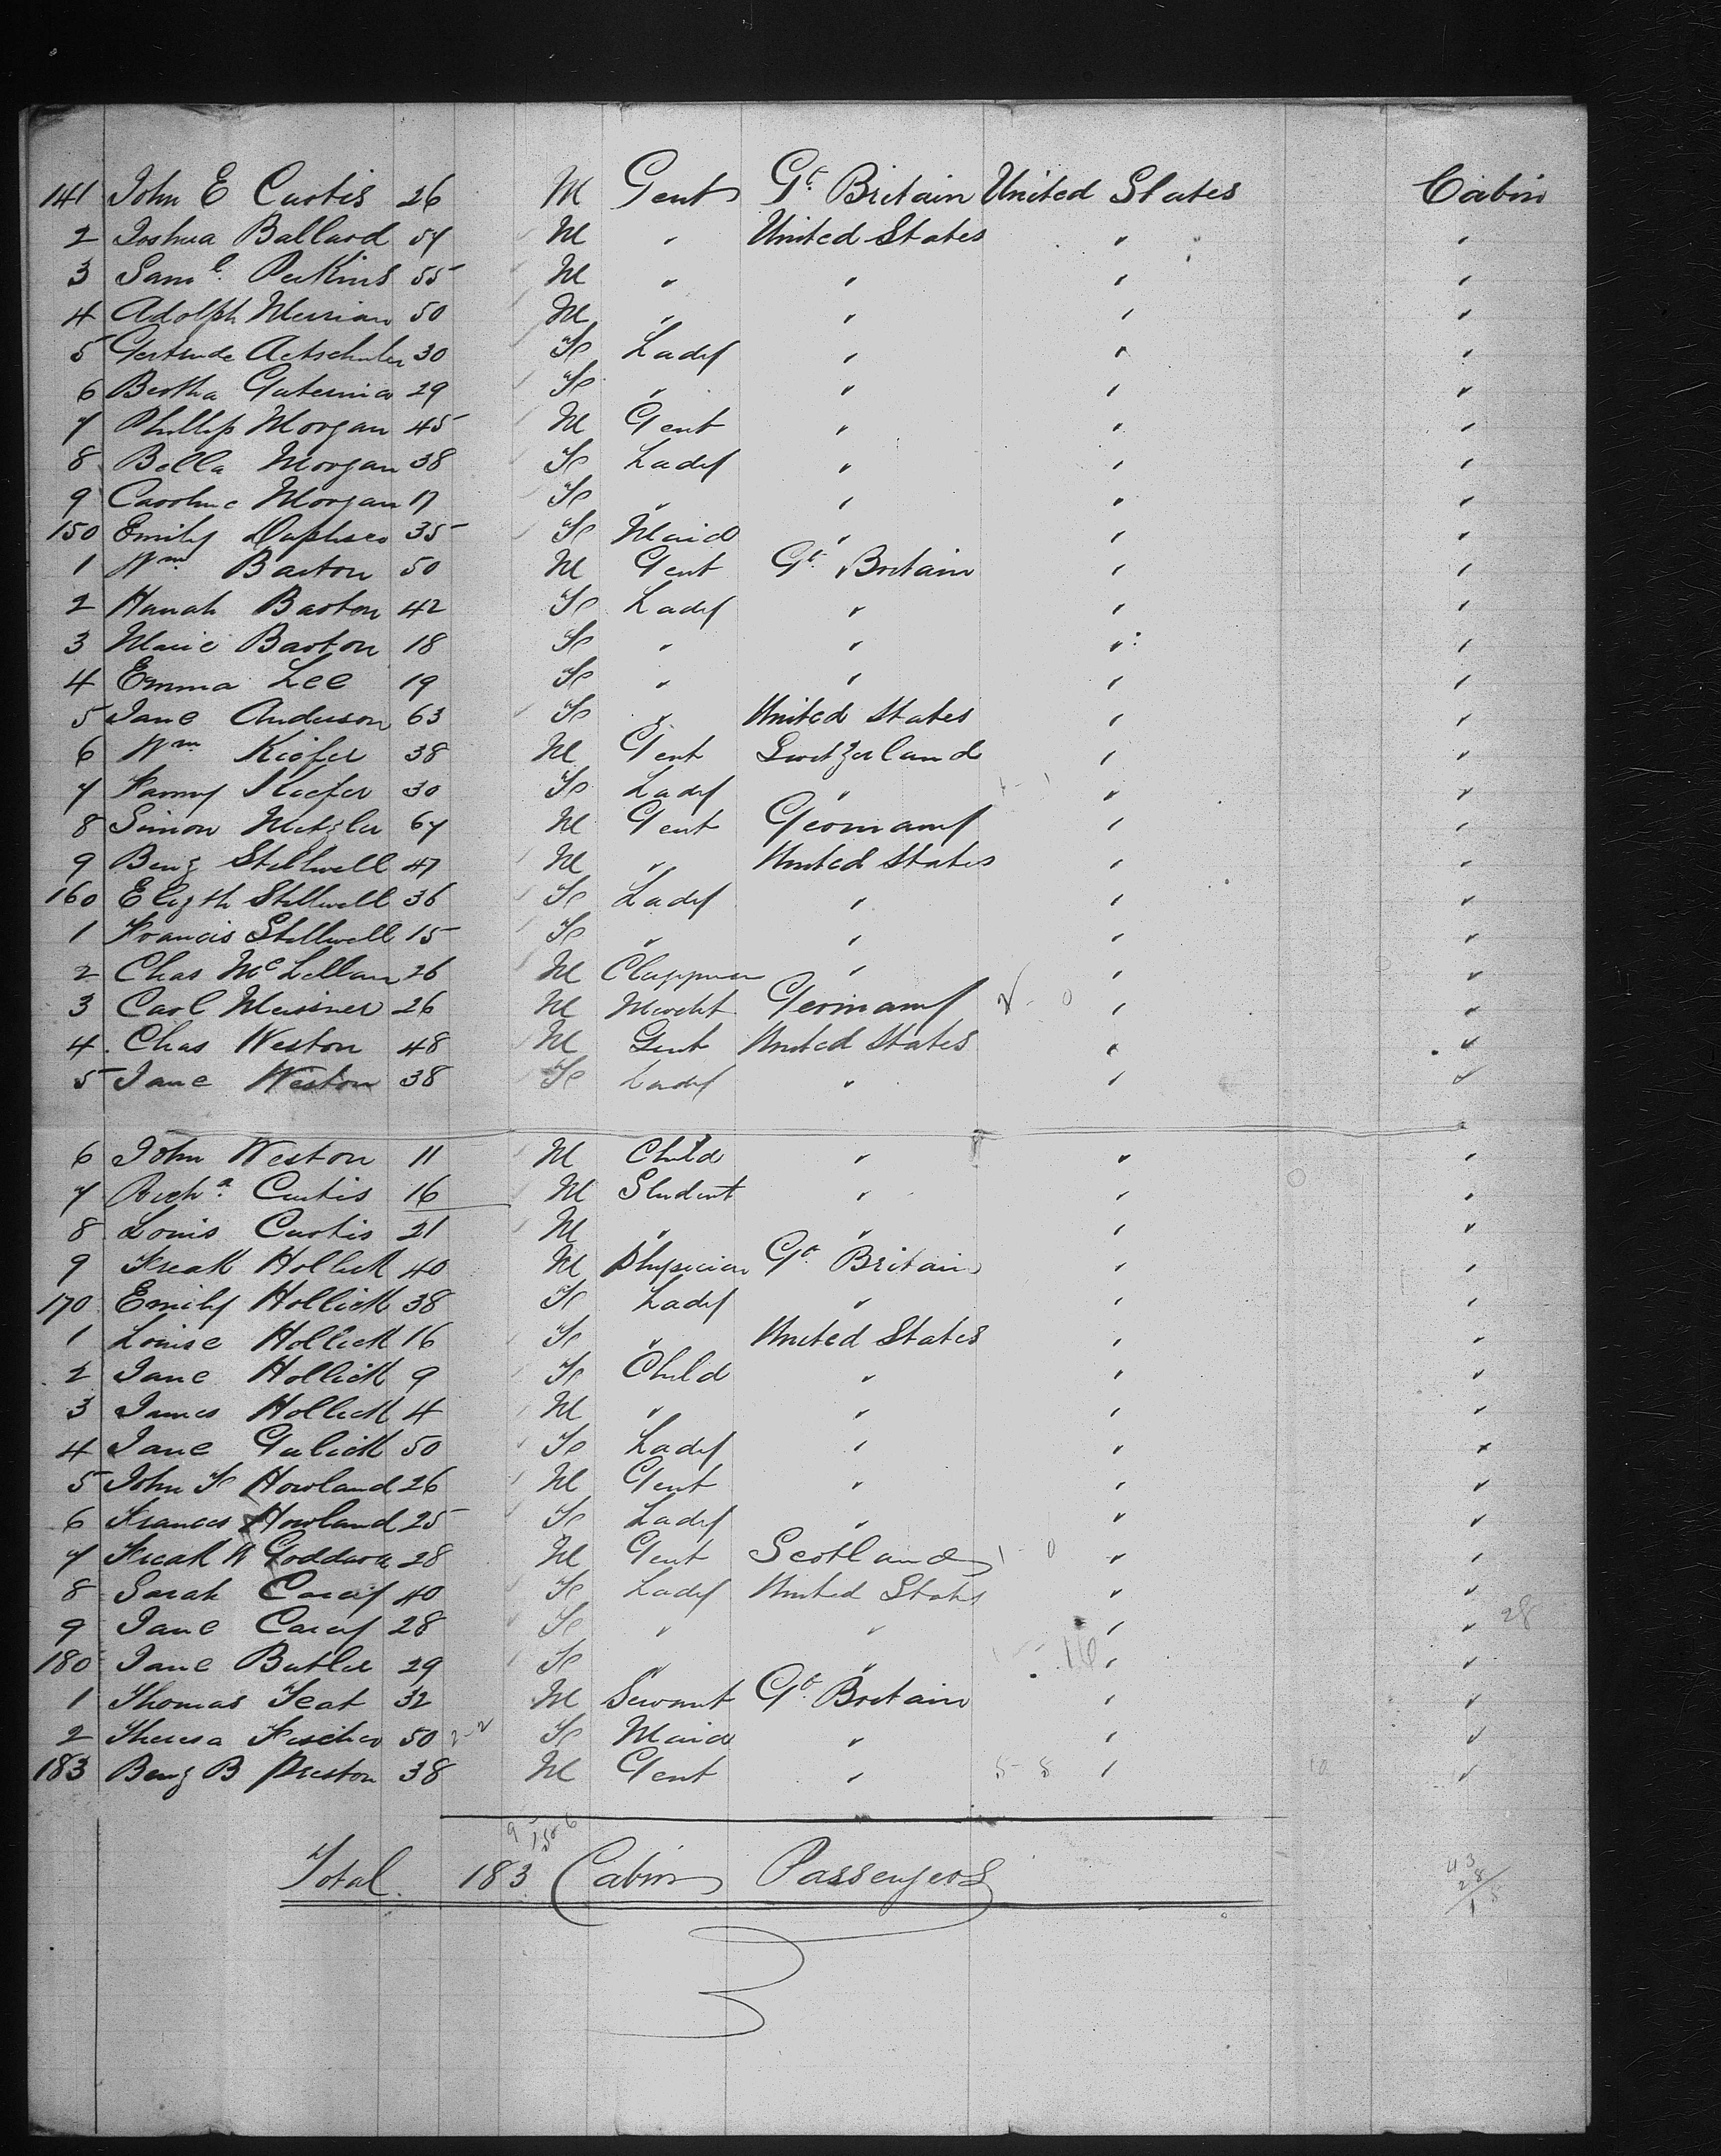 141 John E Curtis 26 M Gent Gt. Britain United States Cabin
2 Joshua Ballard 57 M " United States " "
3 Saml. Perkins 55 M " " " "
4 Adolph 50 M " " " "
5 Gertrude 30 Fe Lady " " "
6 Bertha 29 Fe " " " "
7 Phillip Morgan 45 M Gent " " "
8 Bella Morgan 38 Fe Lady " " "
9 Caroline Morgan 17 Fe " " " "
150 Emily 35 Fe Maid " " "
1 Wm Barton 50 M Gent Gt. Britain " "
2 Hanah Barton 42 Fe Lady " " "
3 Marie Barton 18 Fe " " " "
4 Emma Lee 19 Fe " " " "
5 Jane Anderson 63 Fe " United States " "
6 Wm Kiefer 38 M Gent Switzerland " "
7 Fanny Kiefer 30 Fe Lady " " "
8 Simon Metzler 67 M Gent Germany " "
9 Benj Stillwell 47 M " United States " "
160 Elizth Stillwell 36 Fe Lady " " "
1 Francis Stillwell 15 Fe " " " "
2 Chas McLellan 26 M " " "
3 Carl Meissner 26 M Mercht Germany " "
4 Chas Weston 48 M Gent United States " "
5 Jane Weston 38 Fe Lady " " "
6 John Weston 11 M Child " " "
7 Richd. Curtis 16 M Student " " "
8 Louis Curtis 21 M " " " "
9 Fredk Hollick 40 M Physician Gt. Britain " "
170 Emily Hollick 38 Fe Lady " " "
1 Louise Hollick 16 Fe " United States " "
2 Jane Hollick 9 Fe Child " " "
3 James Hollick 4 M " " " "
4 Jane Gulick 50 Fe Lady " " "
5 John F Howland 26 M Gent " " "
6 Frances Howland 25 Fe Lady " " "
7 Fredk W 28 M Gent Scotland " "
8 Sarah Carey 40 Fe Lady United States " "
9 Jane Carey 28 Fe " " " " 28
180 Jane Butler 29 Fe " " " "
1 Thomas Feat 32 M Servant Gt. Britain " "
2 Theresa Fischer 50 Fe Maid " " "
183 Benj B Preston 38 M Gent " " "
Total 183 Cabin Passengers